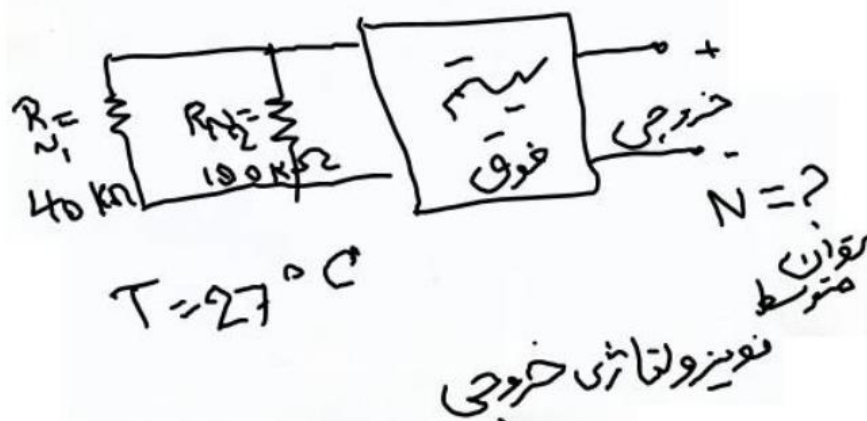 R_N1 = 40 KΩ
R_N2 = 100 KΩ
سیستم
فوق
خروجی
+
-
N = ?
توان
متوسط
T = 27°C
نویز ولتاژی خروجی